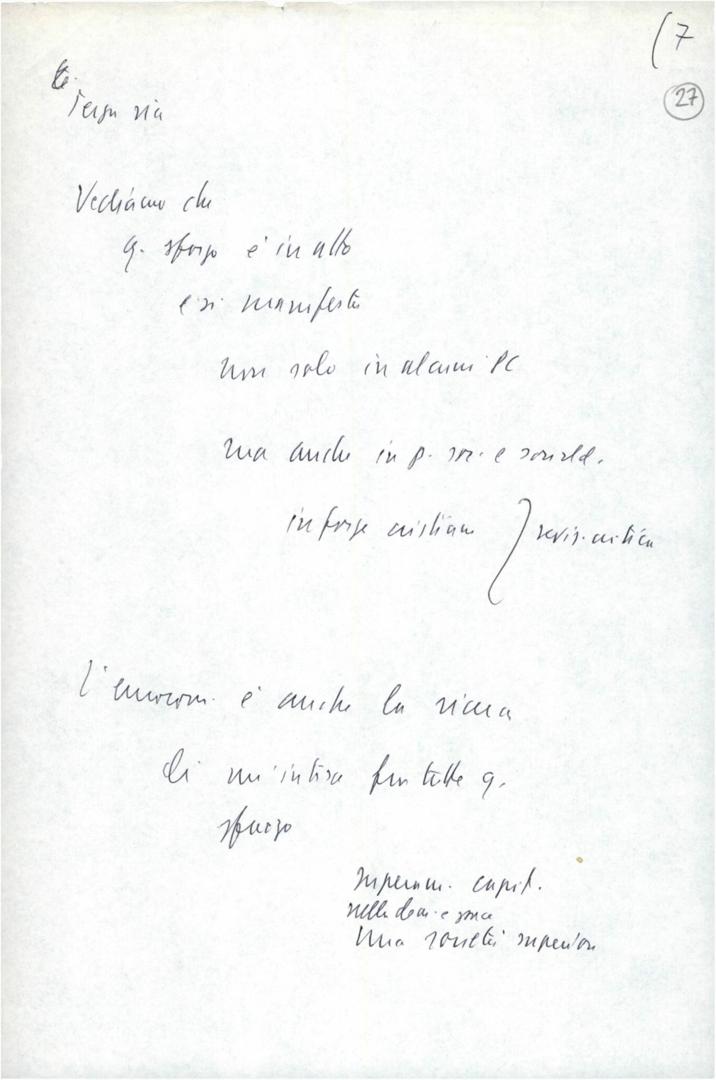 (7
27
Terza via
Vediamo che
q. sforzo è in atto
e si manifesta
non solo in alcuni PC
ma anche in p. soc. e sociald.
in forze cristiane } revis. critica
L'eurocom. è anche la ricerca
di un'intesa fra tutte q.
sforzo
superam. capit.
nelle dem. e
una società superiore